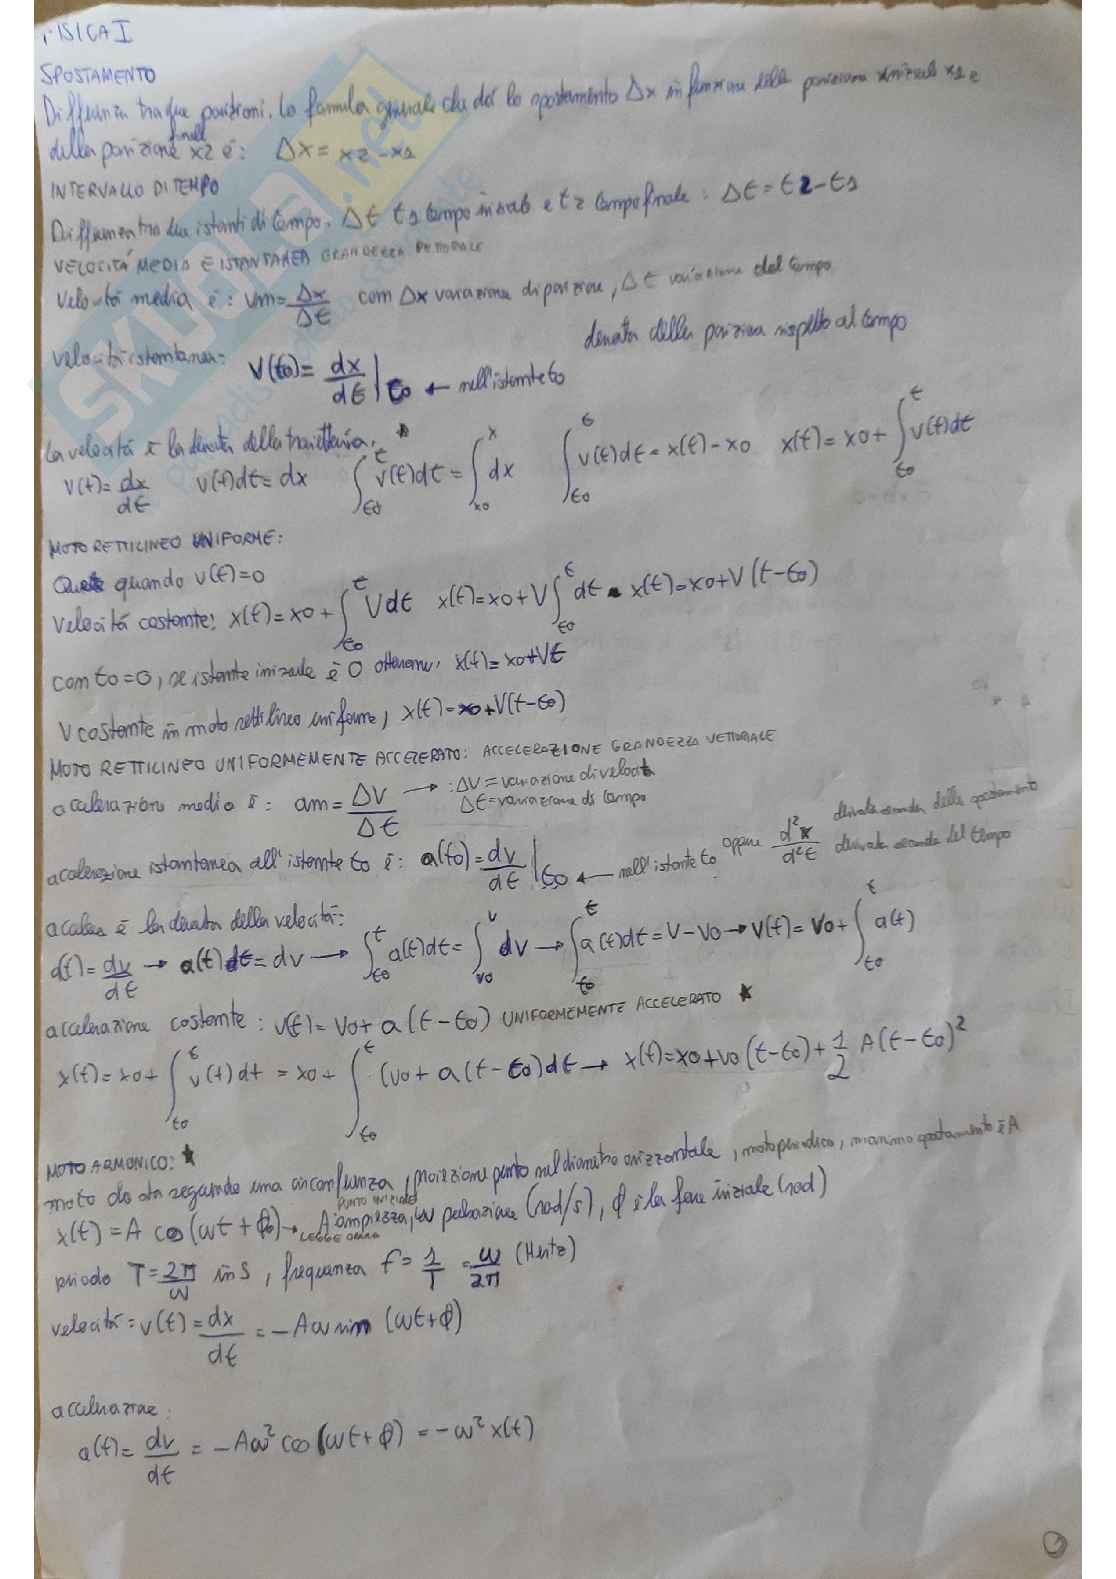 FISICA I
SPOSTAMENTO
Differenza tra due posizioni. La formula generale che dà lo spostamento Δx in funzione della posizione iniziale x1 e
della posizione finale x2 è: Δx = x2-x1
INTERVALLO DI TEMPO
Differenza tra due istanti di tempo. Δt t1 tempo iniziale e t2 tempo finale: Δt = t2-t1
VELOCITÁ MEDIA E ISTANTANEA GRANDEZZA VETTORIALE
Velocitá media è: vm = Δx/Δt com Δx variazione di posizione, Δt variazione del tempo
derivata della posizione rispetto al tempo
velocitá istantanea: V(t0) = dx/dt |t0 ← nell'istante t0
La velocitá è la derivata della traiettoria.
v(t) = dx/dt v(t)dt = dx ∫_t0^t v(t)dt = ∫_x0^x dx ∫_t0^t v(t)dt = x(t)-x0 x(t) = x0 + ∫_t0^t v(t)dt
MOTO RETTILINEO UNIFORME:
quando v(t)=0
Velocitá costante: x(t) = x0 + ∫_t0^t Vdt x(t) = x0 + V∫_t0^t dt x(t) = x0 + V(t-t0)
con t0=0, se istante iniziale è 0 x(t) = x0+Vt
V costante in moto rettilineo uniforme, x(t) = x0+V(t-t0)
MOTO RETTILINEO UNIFORMEMENTE ACCELERATO: ACCELERAZIONE GRANDEZZA VETTORIALE
accelerazione media è: am = ΔV/Δt → : ΔV = variazione di velocità
Δt = variazione di tempo
accelerazione istantanea all'istante t0 è: a(t0) = dv/dt |t0 ← nell'istante t0 oppure d²x/d²t derivata seconda dello spostamento
derivata seconda del tempo
è la derivata della velocitá:
a(t) = dv/dt → a(t)dt = dv → ∫_t0^t a(t)dt = ∫_v0^v dv → ∫_t0^t a(t)dt = V-V0 → V(t) = V0 + ∫_t0^t a(t)
accelerazione costante: v(t) = V0 + a(t-t0) UNIFORMEMENTE ACCELERATO ★
x(t) = x0 + ∫_t0^t v(t)dt = x0 + ∫_t0^t (v0 + a(t-t0)dt → x(t) = x0+v0(t-t0)+1/2 A(t-t0)²
MOTO ARMONICO: ★
moto da seguendo una circonferenza, proiezione punto nel diametro orizzontale, moto periodico, massimo spostamento è A
PUNTO INIZIALE
x(t) = A cos(ωt + φ0) → A ampiezza, ω pulsazione (rad/s), φ è la fase iniziale (rad)
LEGGE ORARIA
periodo T = 2π/ω in s, frequenza f = 1/T = ω/2π (Hertz)
velocitá: v(t) = dx/dt = -Aω sin (ωt+φ)
accelerazione:
a(t) = dv/dt = -Aω² cos(ωt+φ) = -ω² x(t)
SKUOLA.net